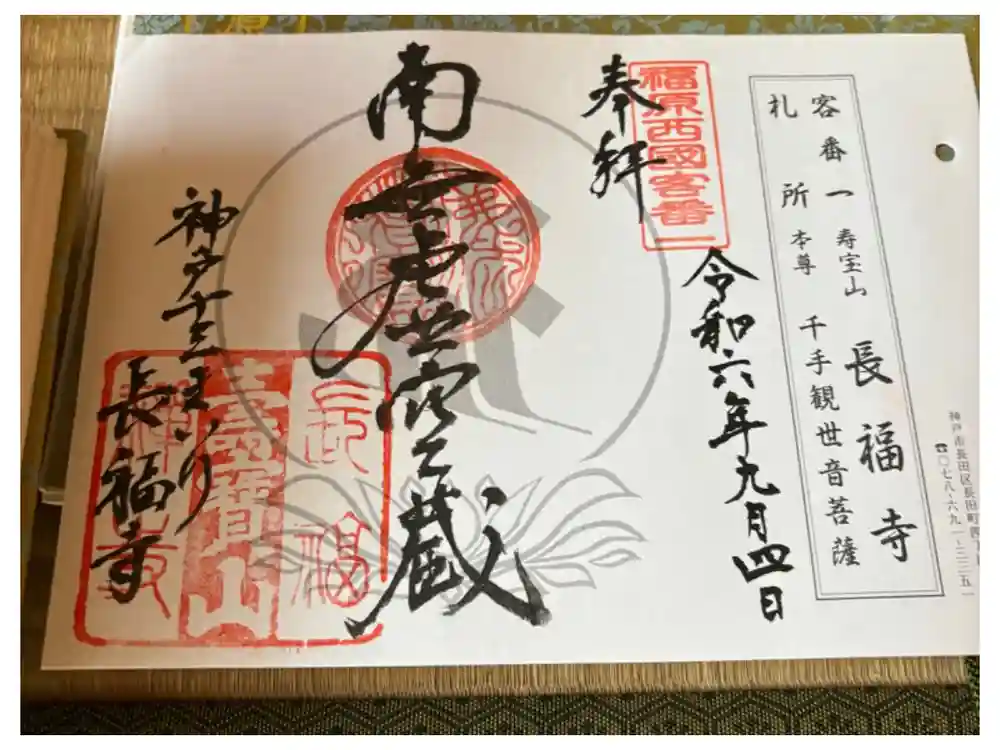 客番一 寿宝山 長福寺
札所 本尊 千手観世音菩薩
神戸市長田区長田町
奉拝
福原西國客番一
令和六年九月四日
南無虚空蔵
神戸十三まいり
長福寺
長福
壽寶山
禅寺